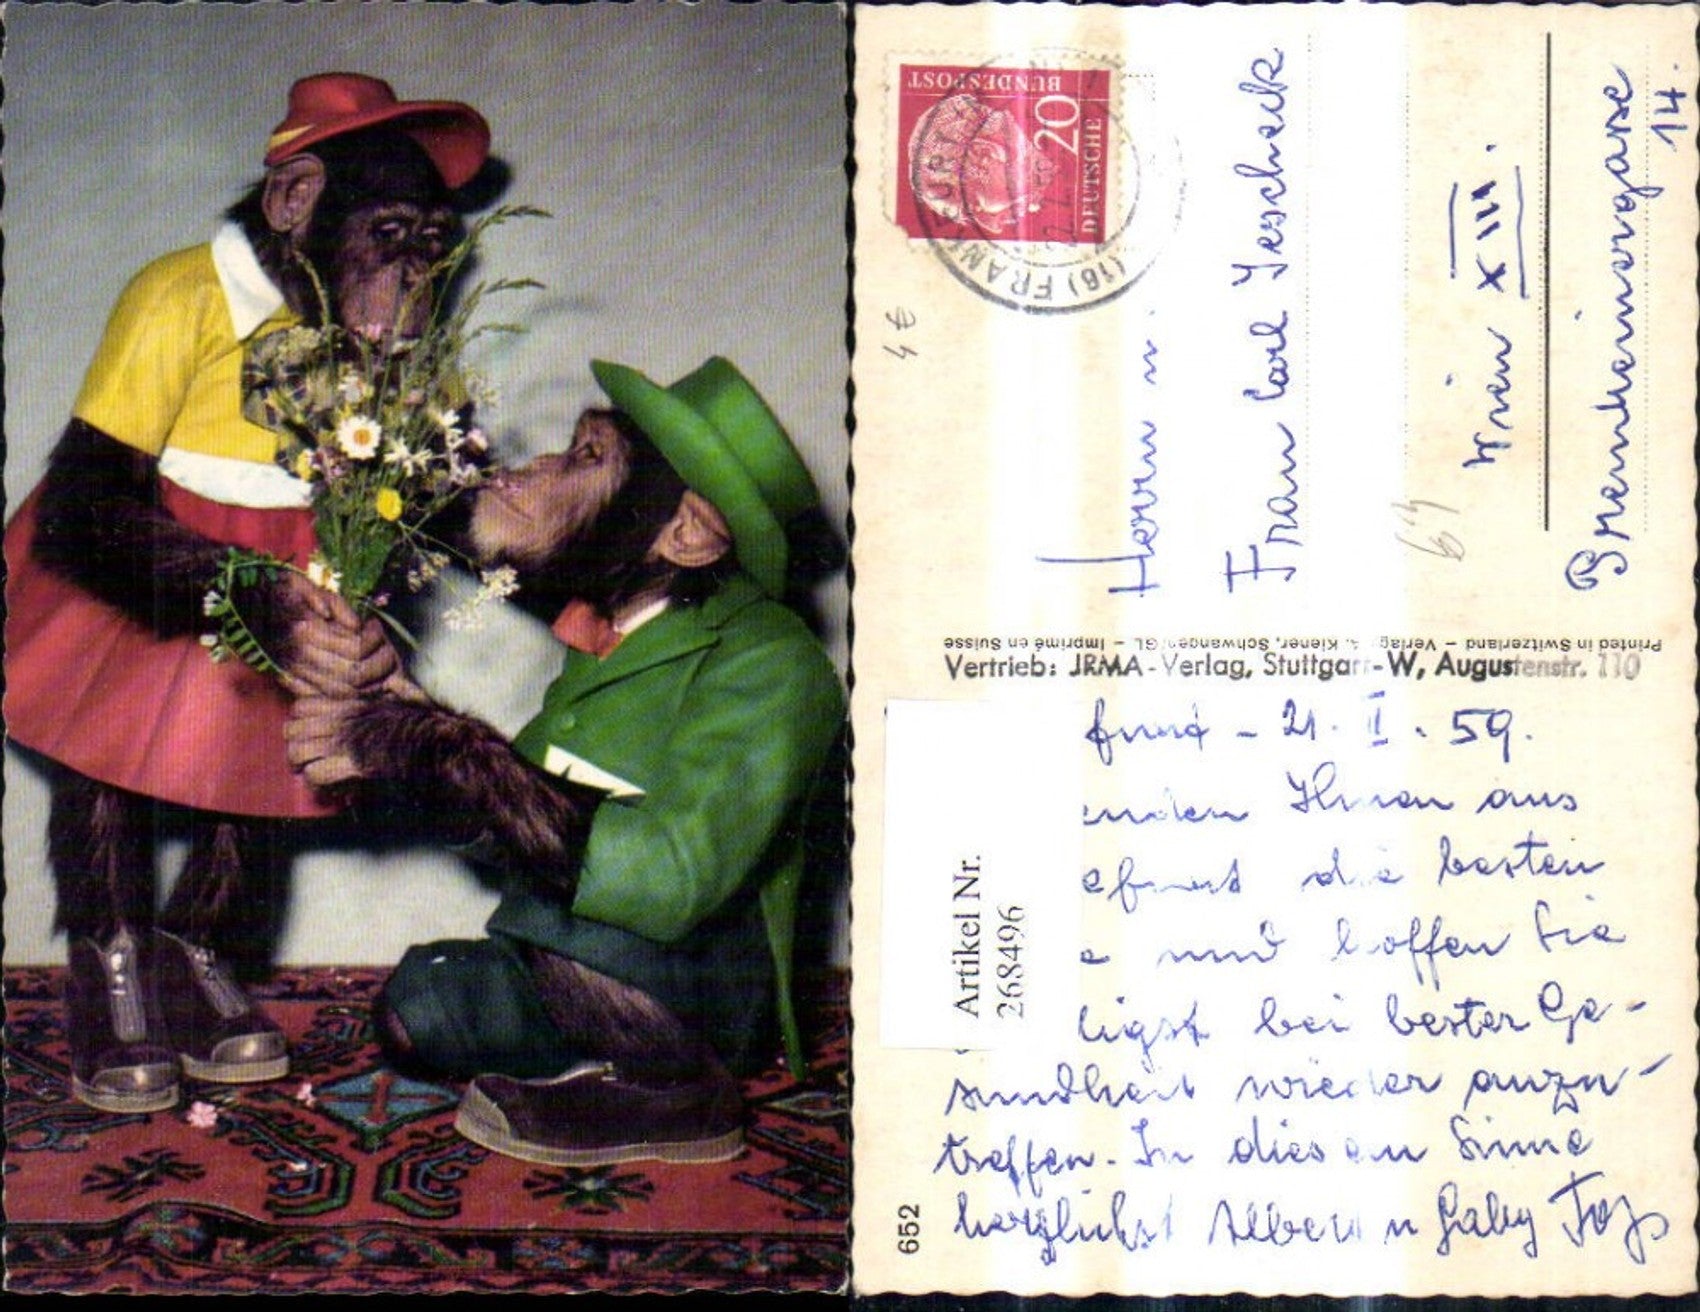 DEUTSCHE
BUNDESPOST
20
(16) FRANKFURT
4 €
Herrn u.
Frau Carl Jescheck
Wien XIII.
14.
69
Printed in Switzerland – Verlag A. Kiener, Schwanden/GL – Imprimé en Suisse
Vertrieb: JRMA-Verlag, Stuttgart-W, Augustenstr. 110
Artikel Nr.
2684496
- 21. II. 59.
Ihnen aus
die besten
und hoffen Sie
bei bester Ge-
sundheit wieder anzu-
treffen. In diesem Sinne
herzlichst Albert u Gaby
652